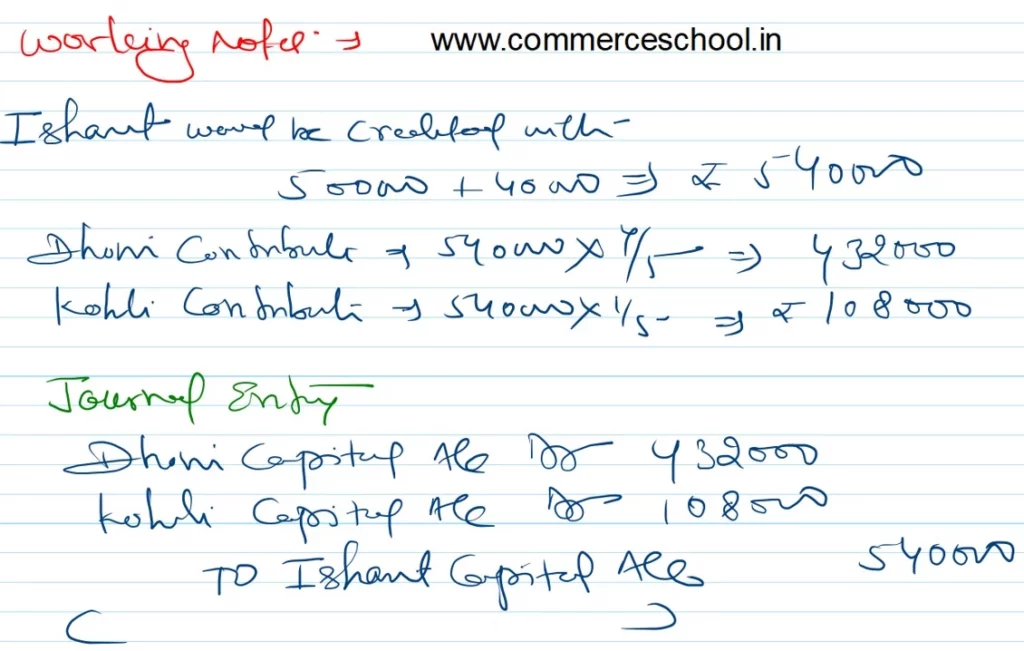 Working Notes:- →
www.commerceschool.in
Ishant would be credited with-
500000 + 40000 ⇒ ₹ 540000
Dhoni Contribute → 540000 × 4/5 ⇒ 432000
Kohli Contribute → 540000 × 1/5 ⇒ ₹ 108000
Journal Entry
Dhoni Capital A/c Dr 432000
Kohli Capital A/c Dr 108000
TO Ishant Capital A/c 540000
( )